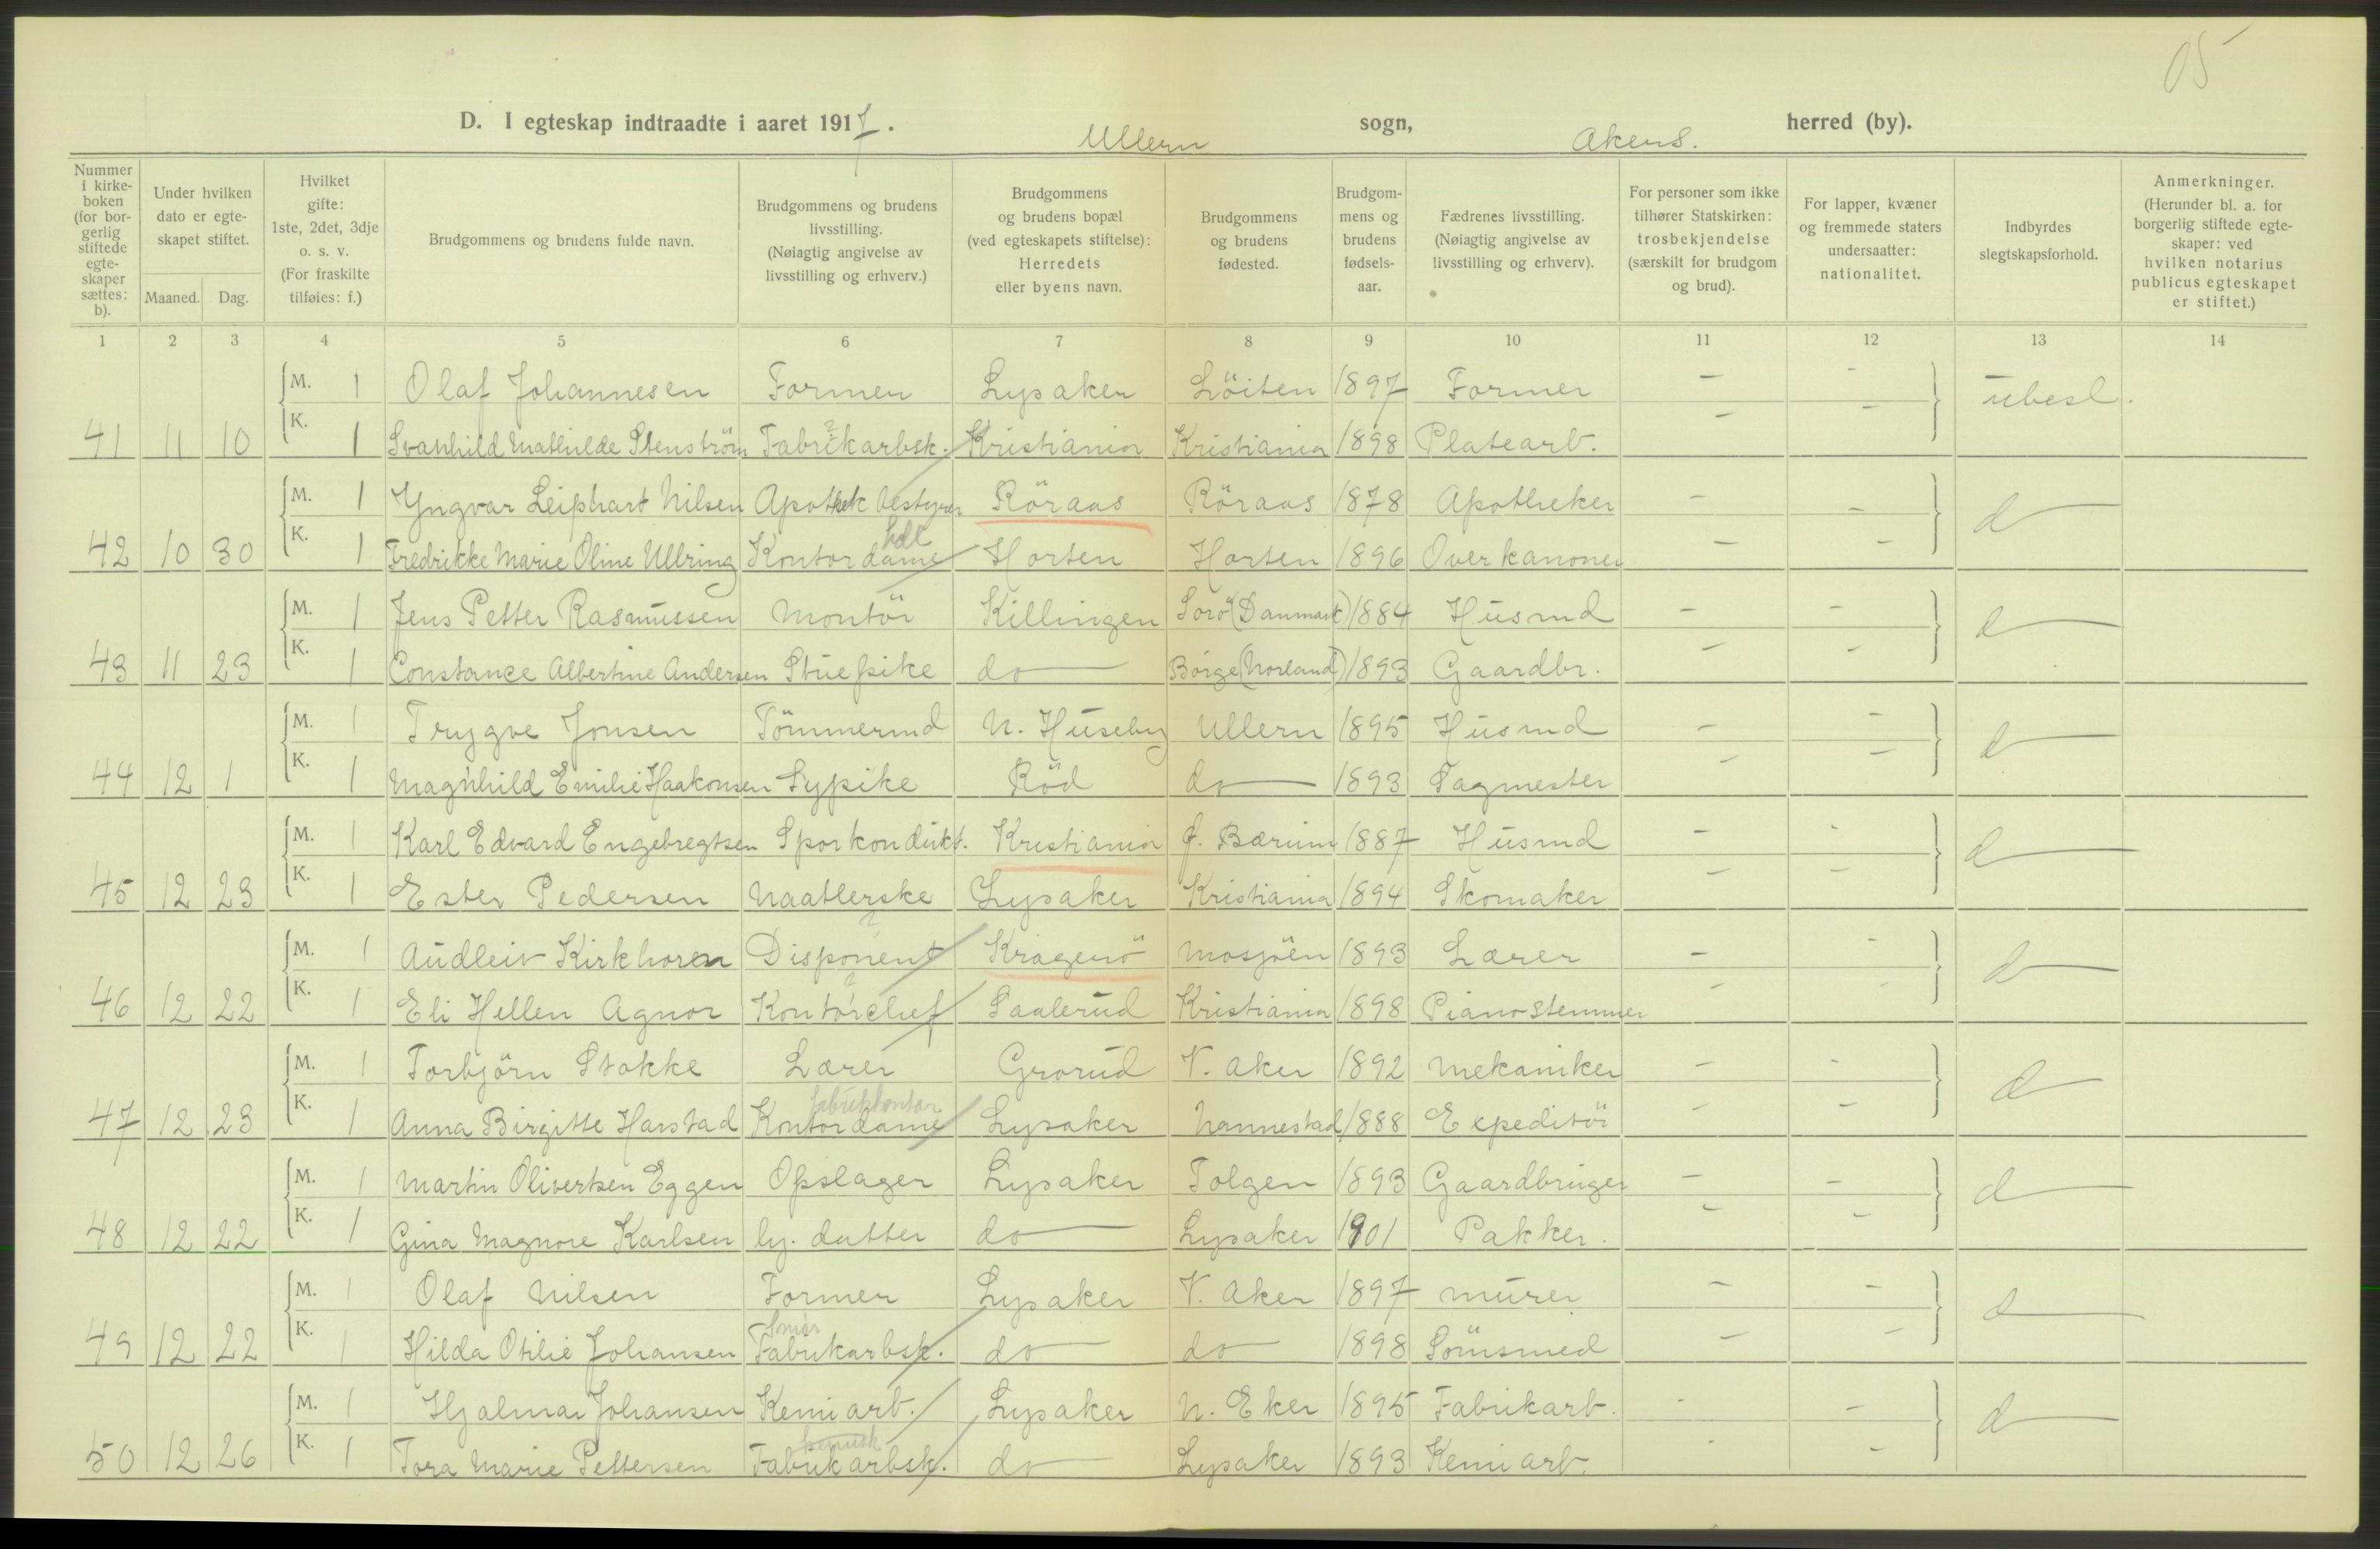 05
D. I egteskap indtraadte i aaret 1917. Ullern sogn, Akers. herred (by).
Nummer i kirke-boken (for bor-gerlig stiftede egte-skaper sættes: b).
Under hvilken dato er egte-skapet stiftet.
Maaned. Dag.
Hvilket gifte: 1ste, 2det, 3dje o. s. v. (For fraskilte tilføies: f.)
Brudgommens og brudens fulde navn.
Brudgommens og brudens livsstilling. (Nøiagtig angivelse av livsstilling og erhverv.)
Brudgommens og brudens bopæl (ved egteskapets stiftelse): Herredets eller byens navn.
Brudgommens og brudens fødested.
Brudgom-mens og brudens fødsels-aar.
Fædrenes livsstilling. (Nøiagtig angivelse av livsstilling og erhverv).
For personer som ikke tilhører Statskirken: trosbekjendelse (særskilt for brudgom og brud).
For lapper, kvæner og fremmede staters undersaatter: nationalitet.
Indbyrdes slegtskapsforhold.
Anmerkninger. (Herunder bl. a. for borgerlig stiftede egte-skaper: ved hvilken notarius publicus egteskapet er stiftet.)
1 2 3 4 5 6 7 8 9 10 11 12 13 14
M. 1 Olaf Johannesen Former Lysaker Löiten 1897 Former — - ubesl.
41 11 10 K. 1 Svanhild Mathilde Stenström Fabrikarbsk. Kristiania Kristiania 1898 Platearb. — —
M. 1 Yngvar Leiphart Nilsen Apothek bestyrer Röraas Röraas 1878 Apotheker — — d
hdl
42 10 30 K. 1 Fredrikke Marie Oline Ullring Kontordame Horten Horten 1896 Overkanoner — —
M. 1 Jens Petter Rasmussen Montör Killingen Sorö (Danmark) 1884 Husmd — — d
43 11 23 K. 1 Constance Albertine Andersen Stuepike do Börge (Norland) 1893 Gaardbr. — —
M. 1 Trygve Jonsen Tömmermd N. Huseby Ullern 1895 Husmd — — d
44 12 1 K. 1 Magnhild Emilie Haakonsen Sypike Röd do 1893 Tagmester — —
M. 1 Karl Edvard Engebregtsen Sporkondukt. Kristiania Ø. Bærum 1887 Husmd — - d
45 12 23 K. 1 Ester Pedersen Naatlerske Lysaker Kristiania 1894 Skomaker — —
M. 1 Audleiv Kirkhoren Disponent Kragerö Mosjöen 1893 Lærer — - d
46 12 22 K. 1 Eli Hellen Agnor Kontorchef Saalerud Kristiania 1898 Pianostemmer - -
M. 1 Torbjörn Stokke Lærer Grorud V. Aker 1892 Mekaniker — - d
fabrikkontor
47 12 23 K. 1 Anna Birgitte Harstad Kontordame Lysaker Nannestad 1888 Expeditör — —
M. 1 Martin Olivertsen Eggen Opslager Lysaker Tolgen 1893 Gaardbruger — — d
48 12 22 K. 1 Gina Magnore Karlsen hj. datter do Lysaker 1901 Pakker. — —
M. 1 Olaf Nilsen Former Lysaker V. Aker 1897 Murer — — d
49 12 22 K. 1 Hilda Otilie Johansen Fabrikarbsk. do do 1898 Sömsmed — —
M. 1 Hjalmar Johansen Kemiarb. Lysaker N. Eker 1895 Fabrikarb. - — d
kemisk
50 12 26 K. 1 Tora Marie Pettersen Fabrikarbsk. do Lysaker 1893 Kemiarb. - —